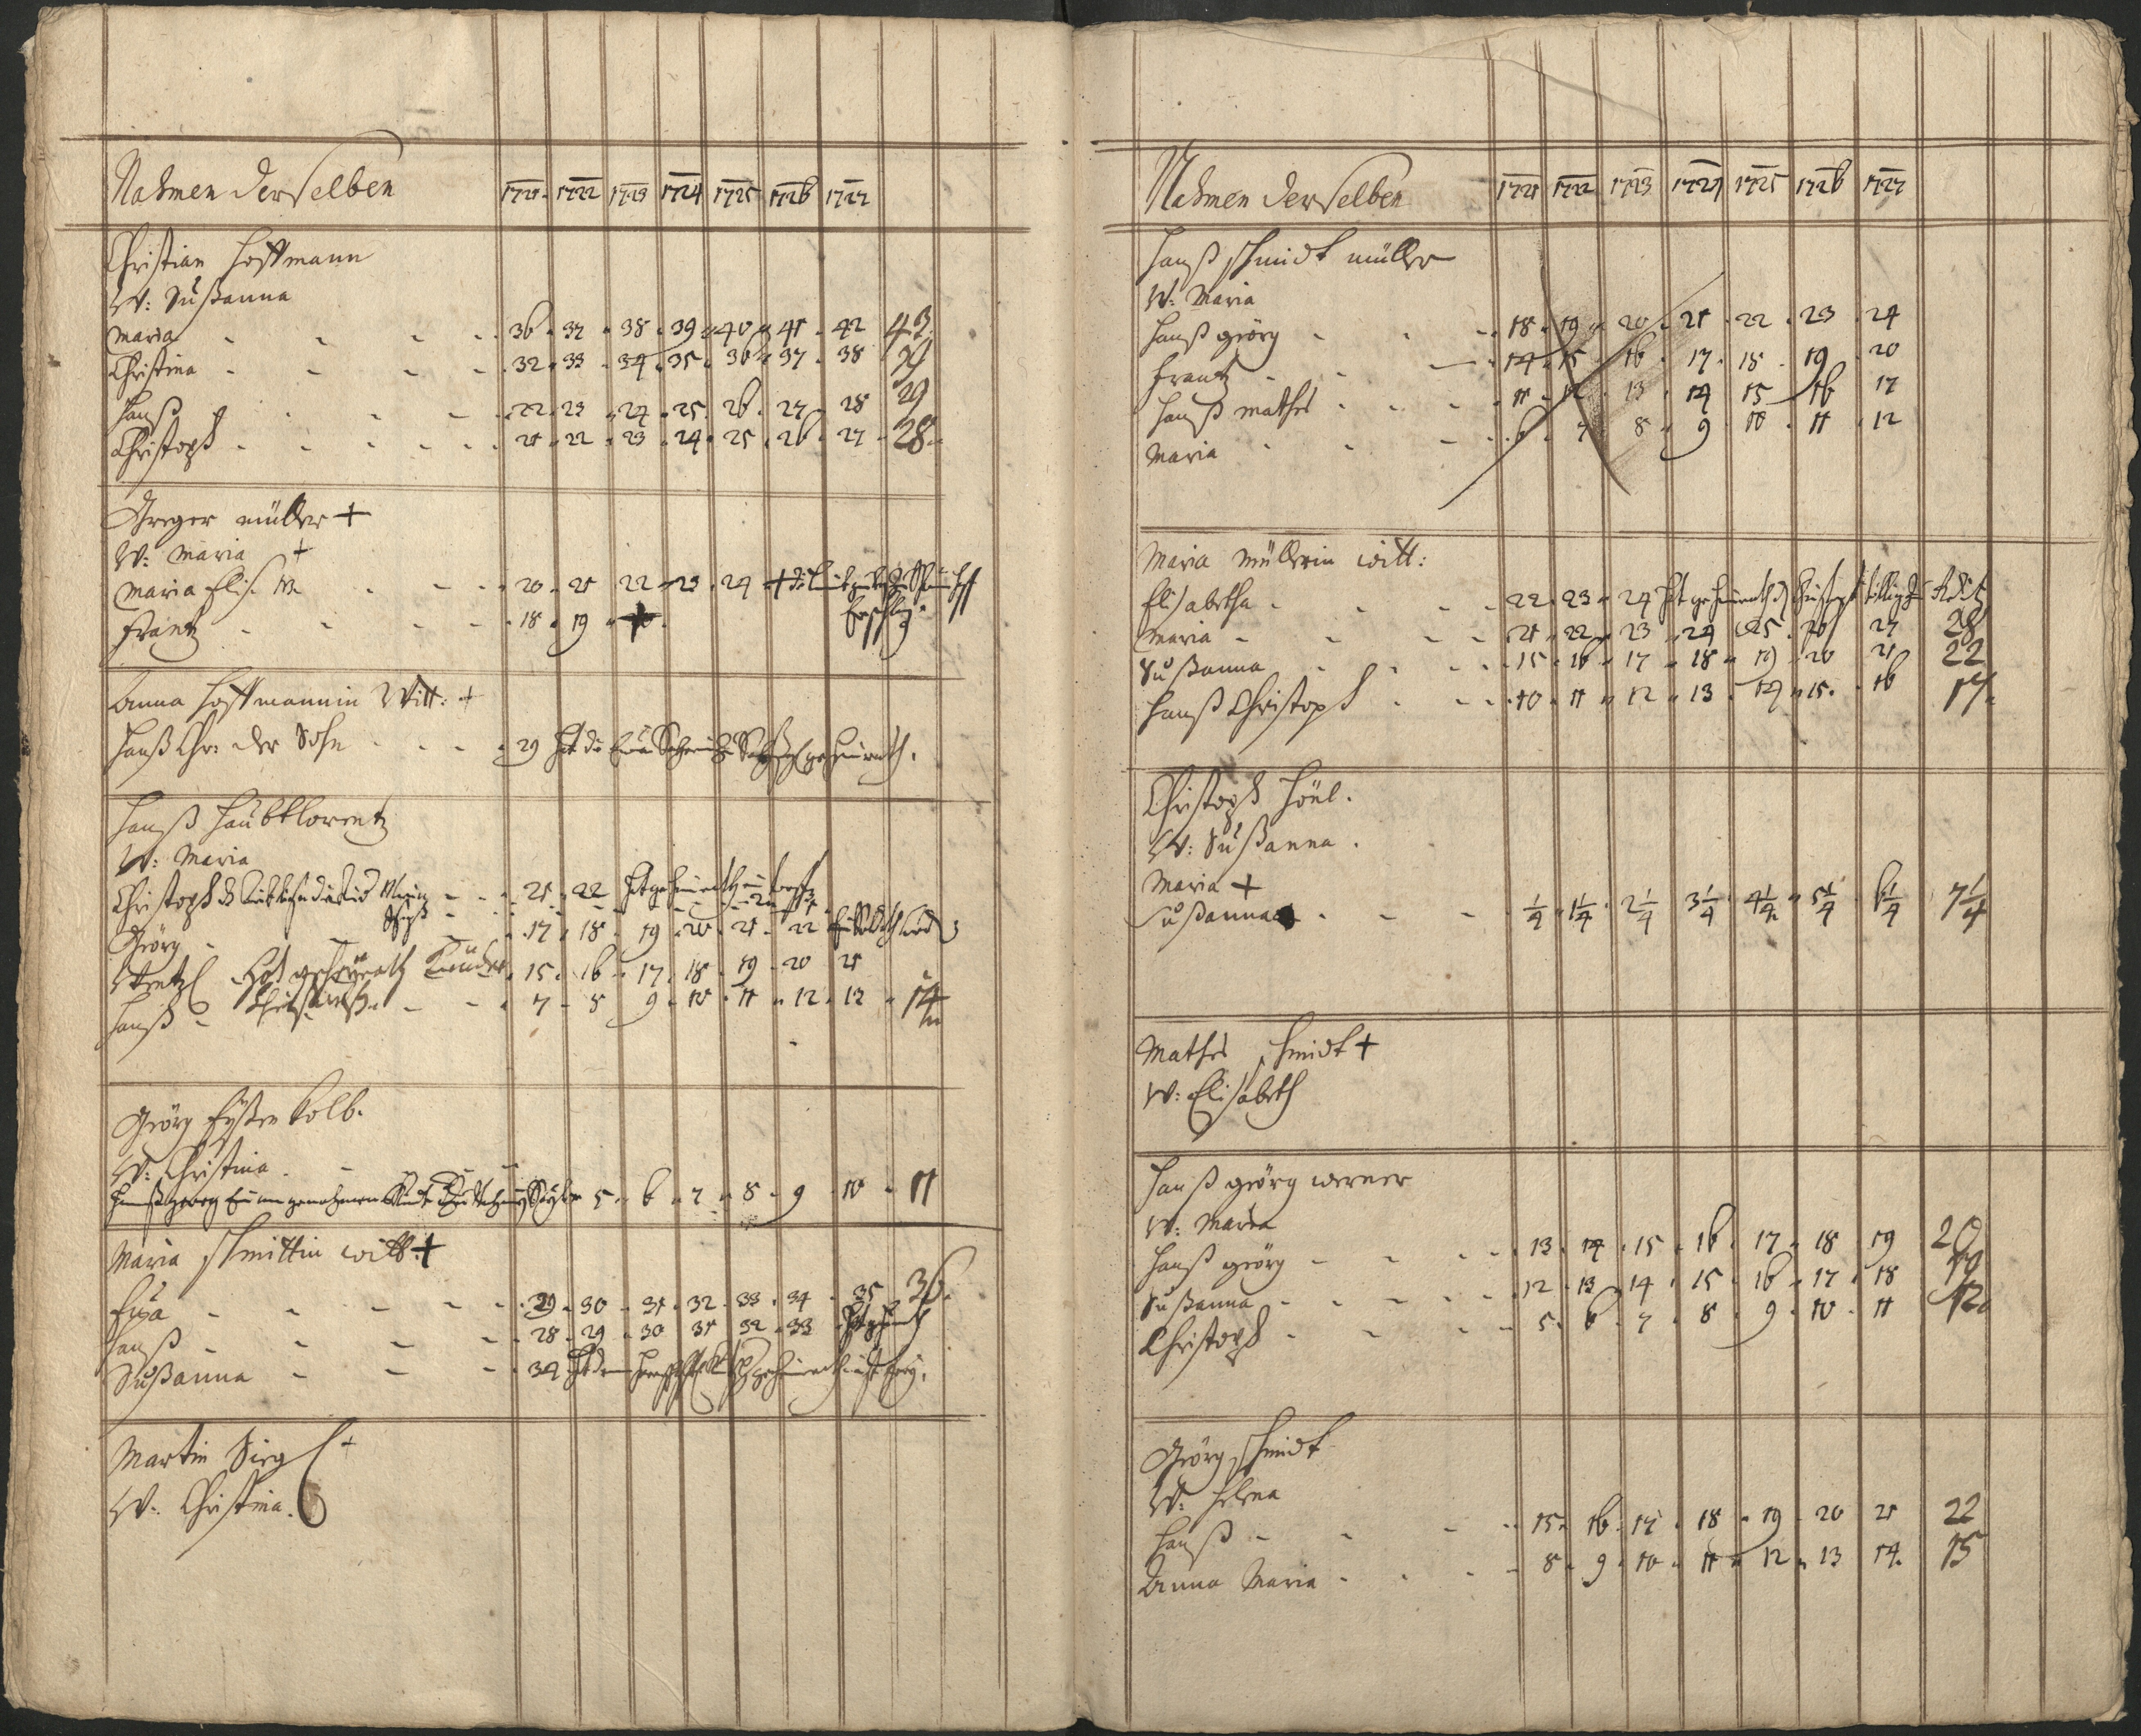 Nahmen derselben 1721 1722 1723 1724 1725 1726 1727
Christian Hoffmann
W: Sußanna
Maria 36 37 38 39 40 41 42 43
Christina 32 33 34 35 36 37 38 39
Hanß 22 23 24 25 26 27 28 29
Christoph 21 22 23 24 25 26 27 28
Greger müller +
W: Maria +
Maria Elis. W. 20 21 22 23 24 +
Frantz 18 19 +
Anna Hoffmannin Witt: +
Hanß Chr: der Sohn 29 Hat die geheürath.
Hanß Haübtlorentz
W: Maria
Christoph 21 22 Hat geheürath
Görg 17 18 19 20 21 22
Wentzl Hat geheyrath 15 16 17 18 19 20 21
Hanß 7 8 9 10 11 12 13 14
Görg Kolb.
W: Christina
Hanß georg 5 6 7 8 9 10 11
Maria Schmittin witt: +
Eva 29 30 31 32 33 34 35 36
Hanß 28 29 30 31 32 33
Sußanna 34 geheürath
Martin Sirgl +
W: Christina.
Nahmen derselben 1721 1722 1723 1724 1725 1726 1727
Hanß Schmidt müller
W: Maria
Hanß görg 18 19 20 21 22 23 24
Frantz 14 15 16 17 18 19 20
Hanß Mathes 11 12 13 14 15 16 17
Maria 6 7 8 9 10 11 12
Maria Müllerin witt:
Elisabetha 22 23 24 Hat geheürath
Maria 21 22 23 24 25 26 27 28
Sußanna 15 16 17 18 19 20 21 22
Hanß Christoph 10 11 12 13 14 15 16 17
Christoph Höül.
W: Sußanna.
Maria +
Sußanna 1/4 1 1/4 2 1/4 3 1/4 4 1/4 5 1/4 6 1/4 7 1/4
Mathes Schmidt +
W: Elisabeth
Hanß görg werner
W: Maria
Hanß görg 13 14 15 16 17 18 19 20
Sußanna 12 13 14 15 16 17 18 19
Christoph 5 6 7 8 9 10 11 12
Görg Schmidt
W: Helena
Hanß 15 16 17 18 19 20 21 22
Anna Maria 8 9 10 11 12 13 14 15